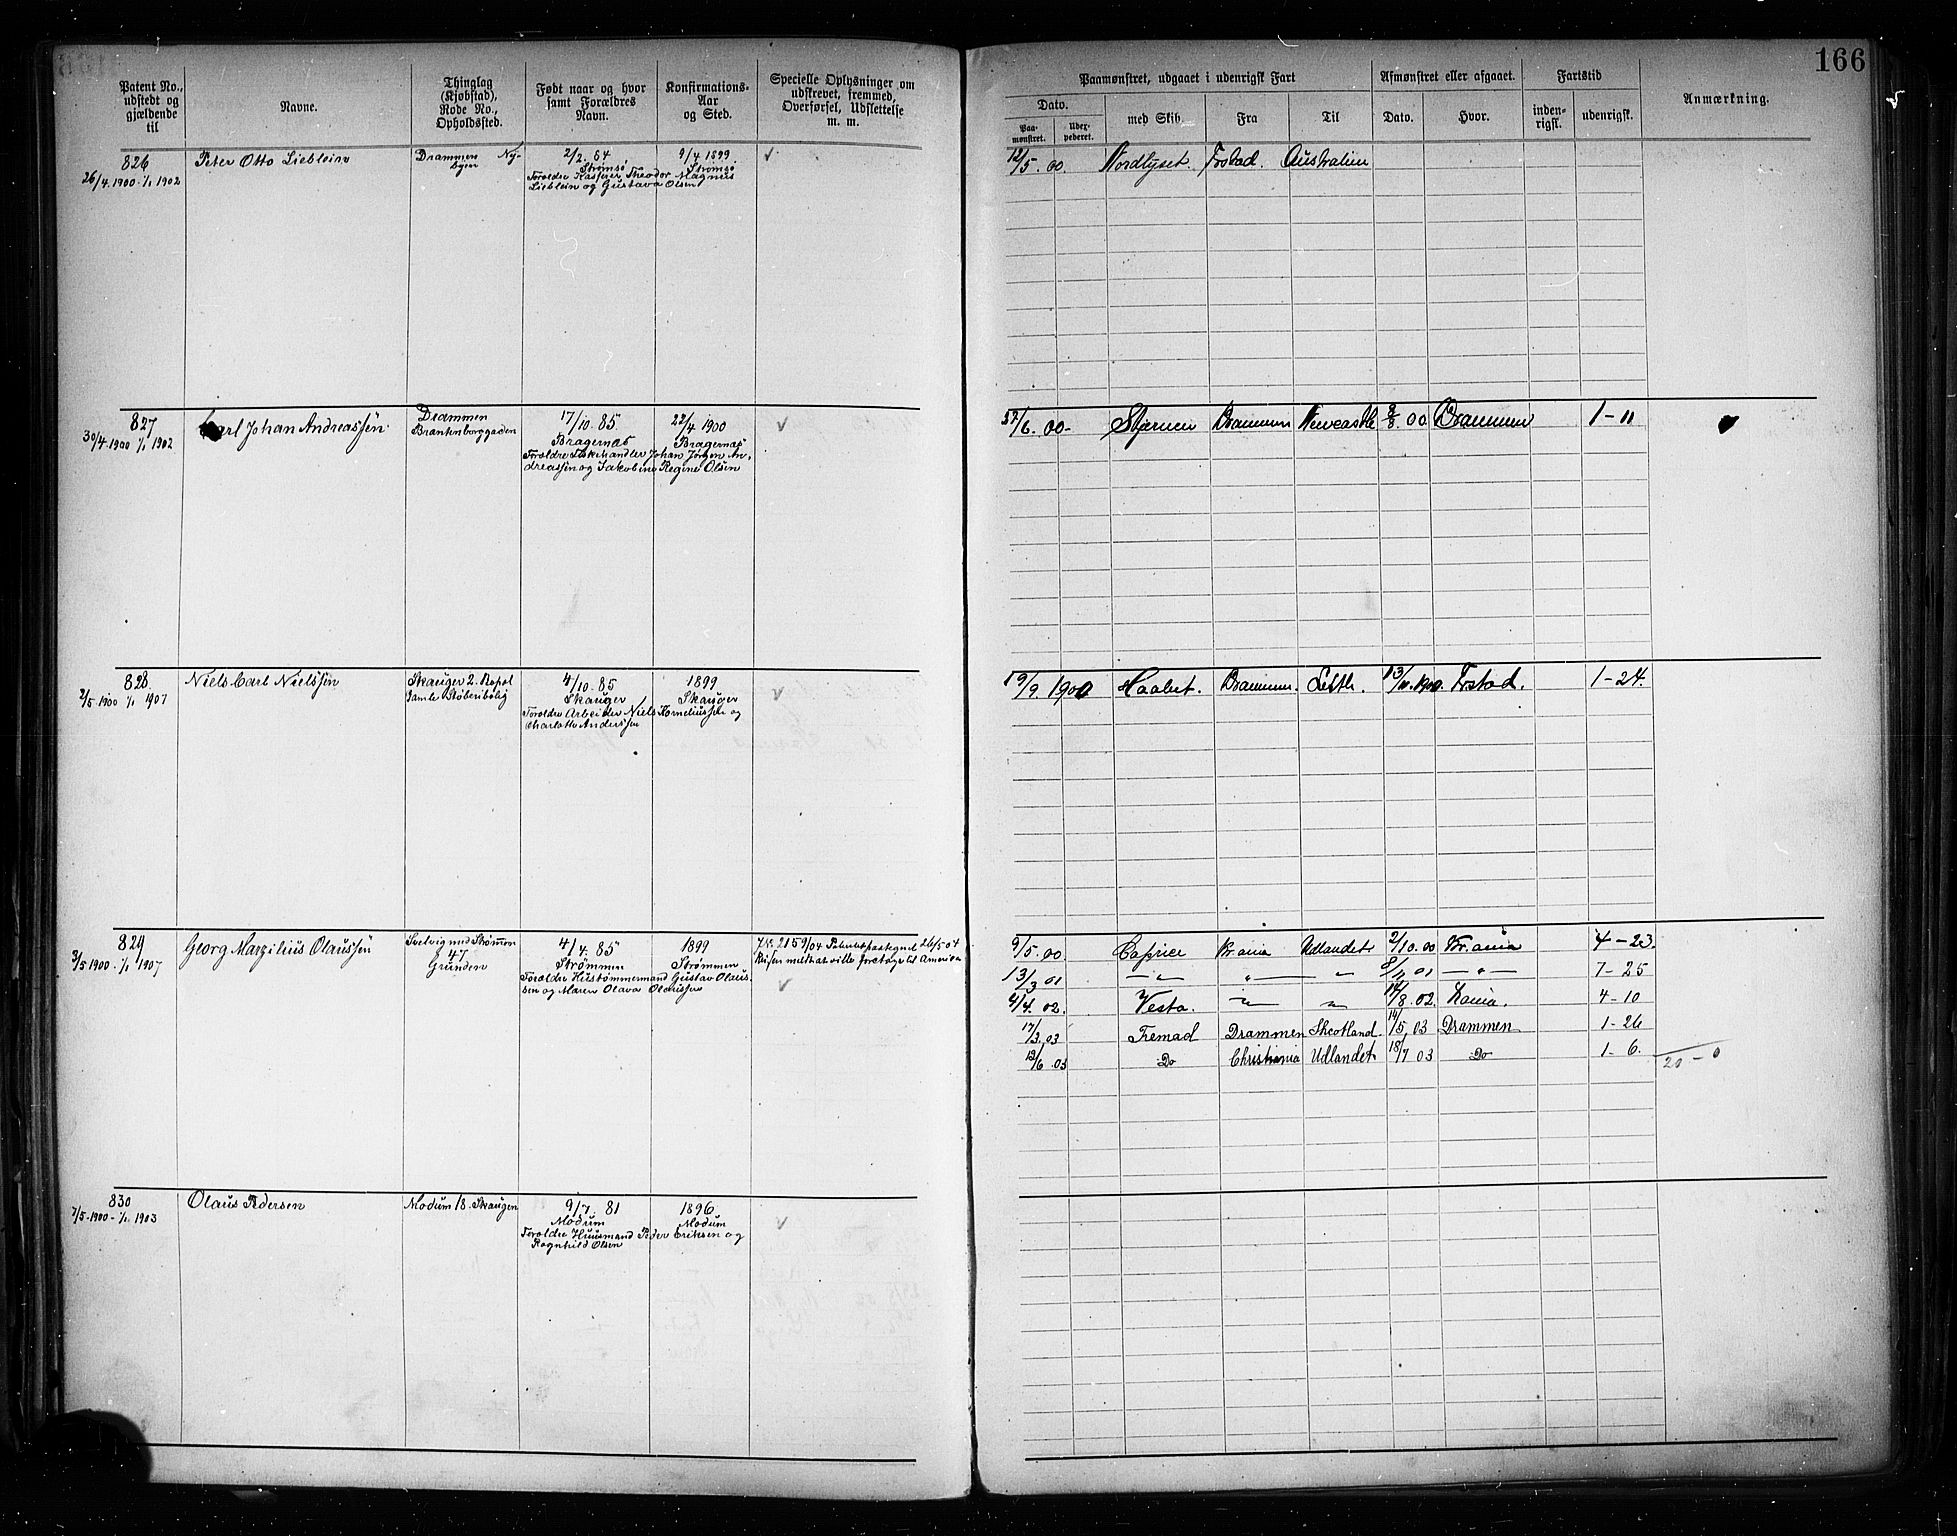 166
Patent No., udstedt og gjældende til
Navne.
Thinglag (Kjøbstad), Rode No., Opholdssted.
Født naar og hvor samt Forældres Navn.
Konfirmations-Aar og Sted.
Specielle Oplysninger om udskrevet, fremmed, Overførsel, Udslettelse m. m.
Paamønstret, udgaaet i udenrigsk Fart
Dato.
Paa-mønstret.
med Skib.
Fra
Til
Afmønstret eller afgaaet.
Dato.
Hvor.
Fartstid
inden-rigsk.
udenrigsk.
Anmærkning.
826
26/4. 1900. 1/1 1902
Peter Otto Lieblein
Drammen Ny-
byen
2/2. 84
Strømsø
9/4 1899
Strømsø
Foroldre Kasper Theodor Magnus
Lieblein og Gustava Olsen
12/5. 00. Nordlyset. Frstad. Australien
827
30/4. 1900 1/1 1902
Carl Johan Andreassen
Drammen
17/10. 85.
Bragernæs
22/4 1900
Bragernæs
Foroldre Fiskehandler Johan Jørgen An-
dreassen og Jakobine Regine Olsen
/6. 00. Stjernen Drammen Newcastle 8/8. 00. Drammen 1-11
828
2/5. 1900 1/1 1907
Niels Carl Nielssen
Skauger 2.
Gamle
4/10. 85
Skauger
1899
Skauger
Foroldre Arbeider Niels Korneliussen og
Charlotte Anderssen
19/9. 1900 Haabet. Drammen. Leith. 13/11. 1900. Frstad. 1-24.
829
3/5. 1900. 1/1 1907
Georg Marzilius Olaussen
Svelvig med Strømmen
47
Grunden
4/4. 85
Strømmen
1899
Strømmen
Foroldre Gustav Olaus-
sen og Maren Olava Olaussen
J.No. 215 9/04 26/5 04
Reisen ville foretage til Amerika
9/5. 00. Caprice Kr.ania Udlandet 2/10. 00 Kr.ania 4-23.
13/3 01 — " — " — " 8/11 01 — " — 7-25
4/4. 02. Vesta. — " — " 14/8. 02. Kania. 4-10
17/3. 03 Fremad Drammen Skotland. 14/5 03 Drammen 1-26
12/6. 03 Do Christiania Udlandet 18/7 03 Do 1-6.
20-0
830
7/5. 1900 - 1/1. 1903
Olaus Pedersen
Modum 18. Skaugen
9/7. 81
Modum
1896
Modum
Foroldre Huusmand Peder Eriksen og
Ragnhild Olsen